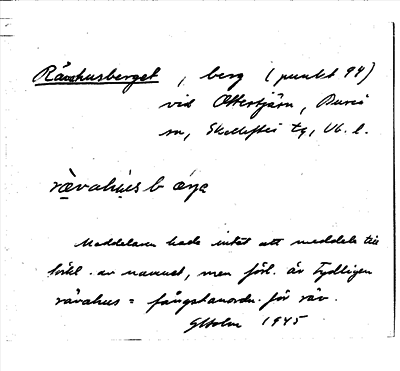 Rävahusberget, berg (punkt 94)
vid Ottertjärn, Bureå
sn, Skellefteå tg, Vb. l.
rävahu̇sbærjɛ
Meddelaren hade intet att meddela till
förkl. av namnet, men förl. är tydligen
rävahus = fångstanordn. för räv.
GHolm 1945